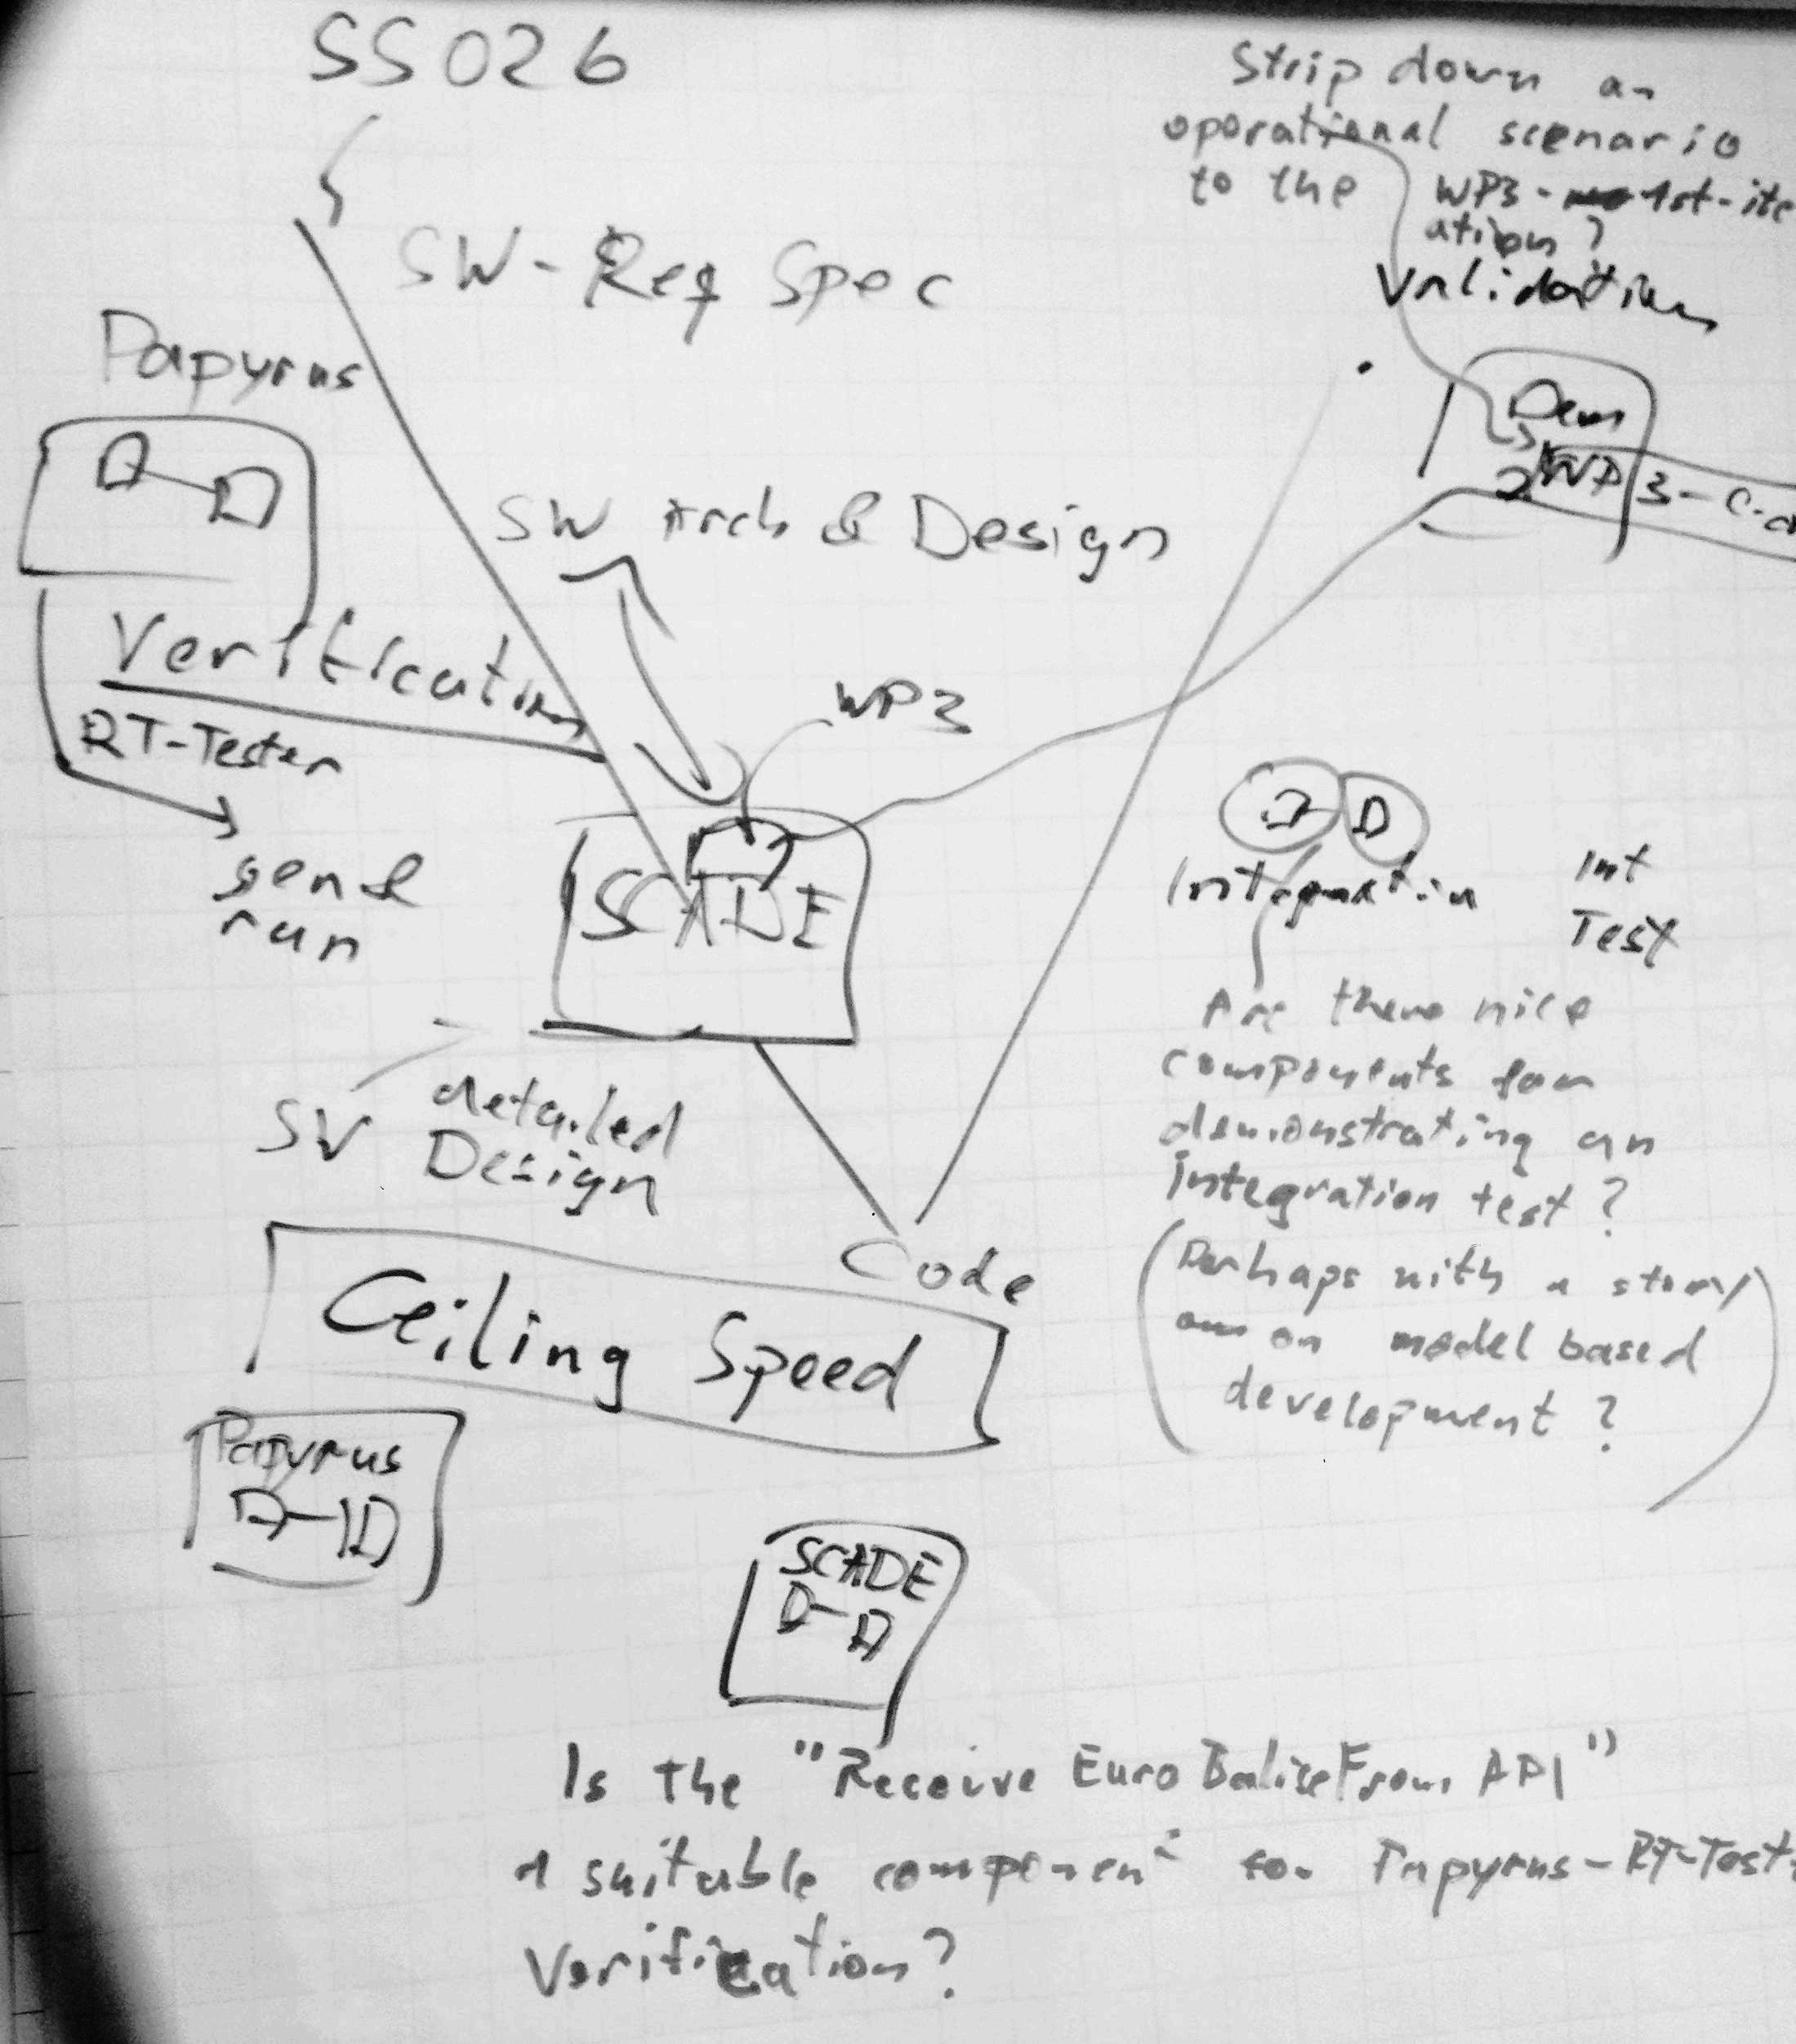 SS026
Strip down an
operational scenario
to the WP3-1st-ite
ation?
Validation
SW-Req Spec
Papyrus
SW Arch & Design
Verification
RT-Tester
gen &
run
WP3
SCADE
Integration
Int
Test
Are there nice
components for
demonstrating an
integration test?
(Perhaps with a story
on model based
development?)
SW detailed
Design
Code
Ceiling Speed
Papyrus
SCADE
Is the "Receive EuroBaliseFrom API"
a suitable component for Papyrus-RT-Test
Verification?